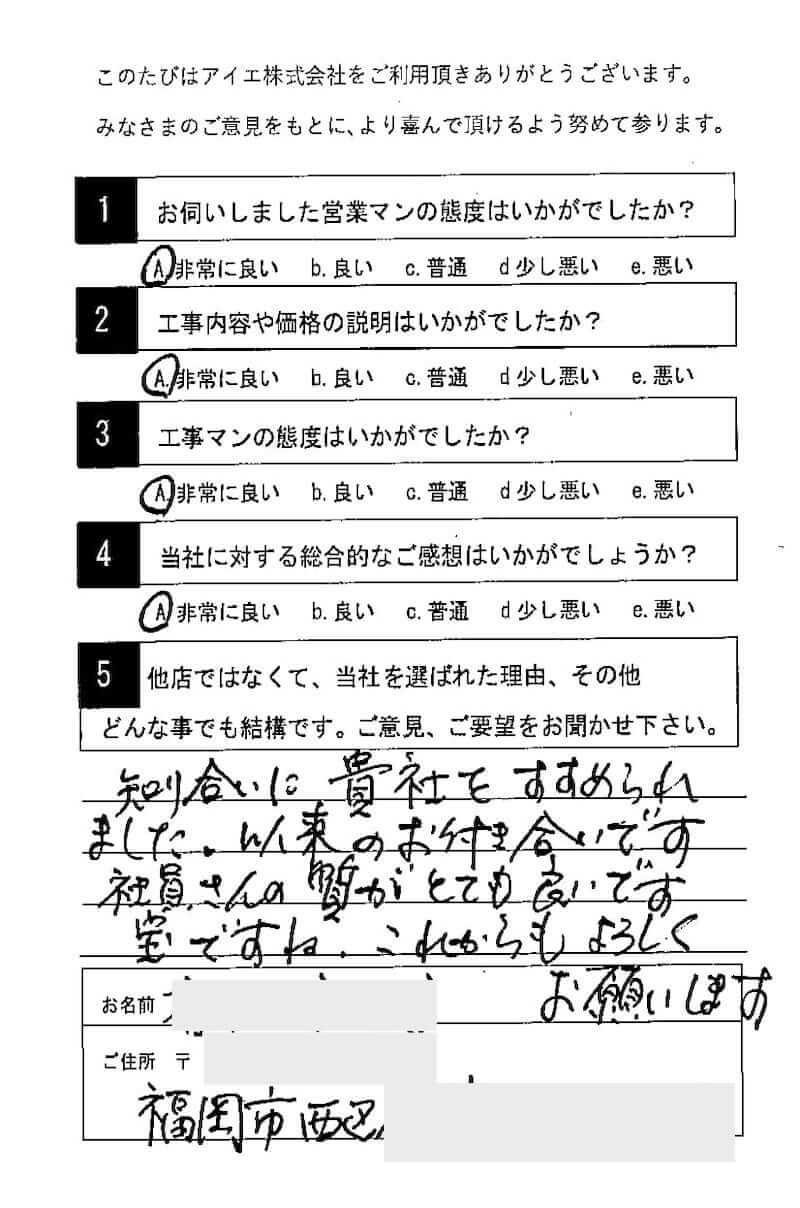 このたびはアイエ株式会社をご利用頂きありがとうございます。
みなさまのご意見をもとに、より喜んで頂けるよう努めて参ります。
1 お伺いしました営業マンの態度はいかがでしたか？
A 非常に良い b. 良い c. 普通 d 少し悪い e. 悪い
2 工事内容や価格の説明はいかがでしたか？
A. 非常に良い b. 良い c. 普通 d 少し悪い e. 悪い
3 工事マンの態度はいかがでしたか？
A. 非常に良い b. 良い c. 普通 d 少し悪い e. 悪い
4 当社に対する総合的なご感想はいかがでしょうか？
A 非常に良い b. 良い c. 普通 d 少し悪い e. 悪い
5 他店ではなくて、当社を選ばれた理由、その他
どんな事でも結構です。ご意見、ご要望をお聞かせ下さい。
知り合いに貴社をすすめられ
ました。以来のお付き合いです
社員さんの質がとても良いです
宝ですね、これからもよろしく
お願いします
お名前
ご住所 〒
福岡市西区